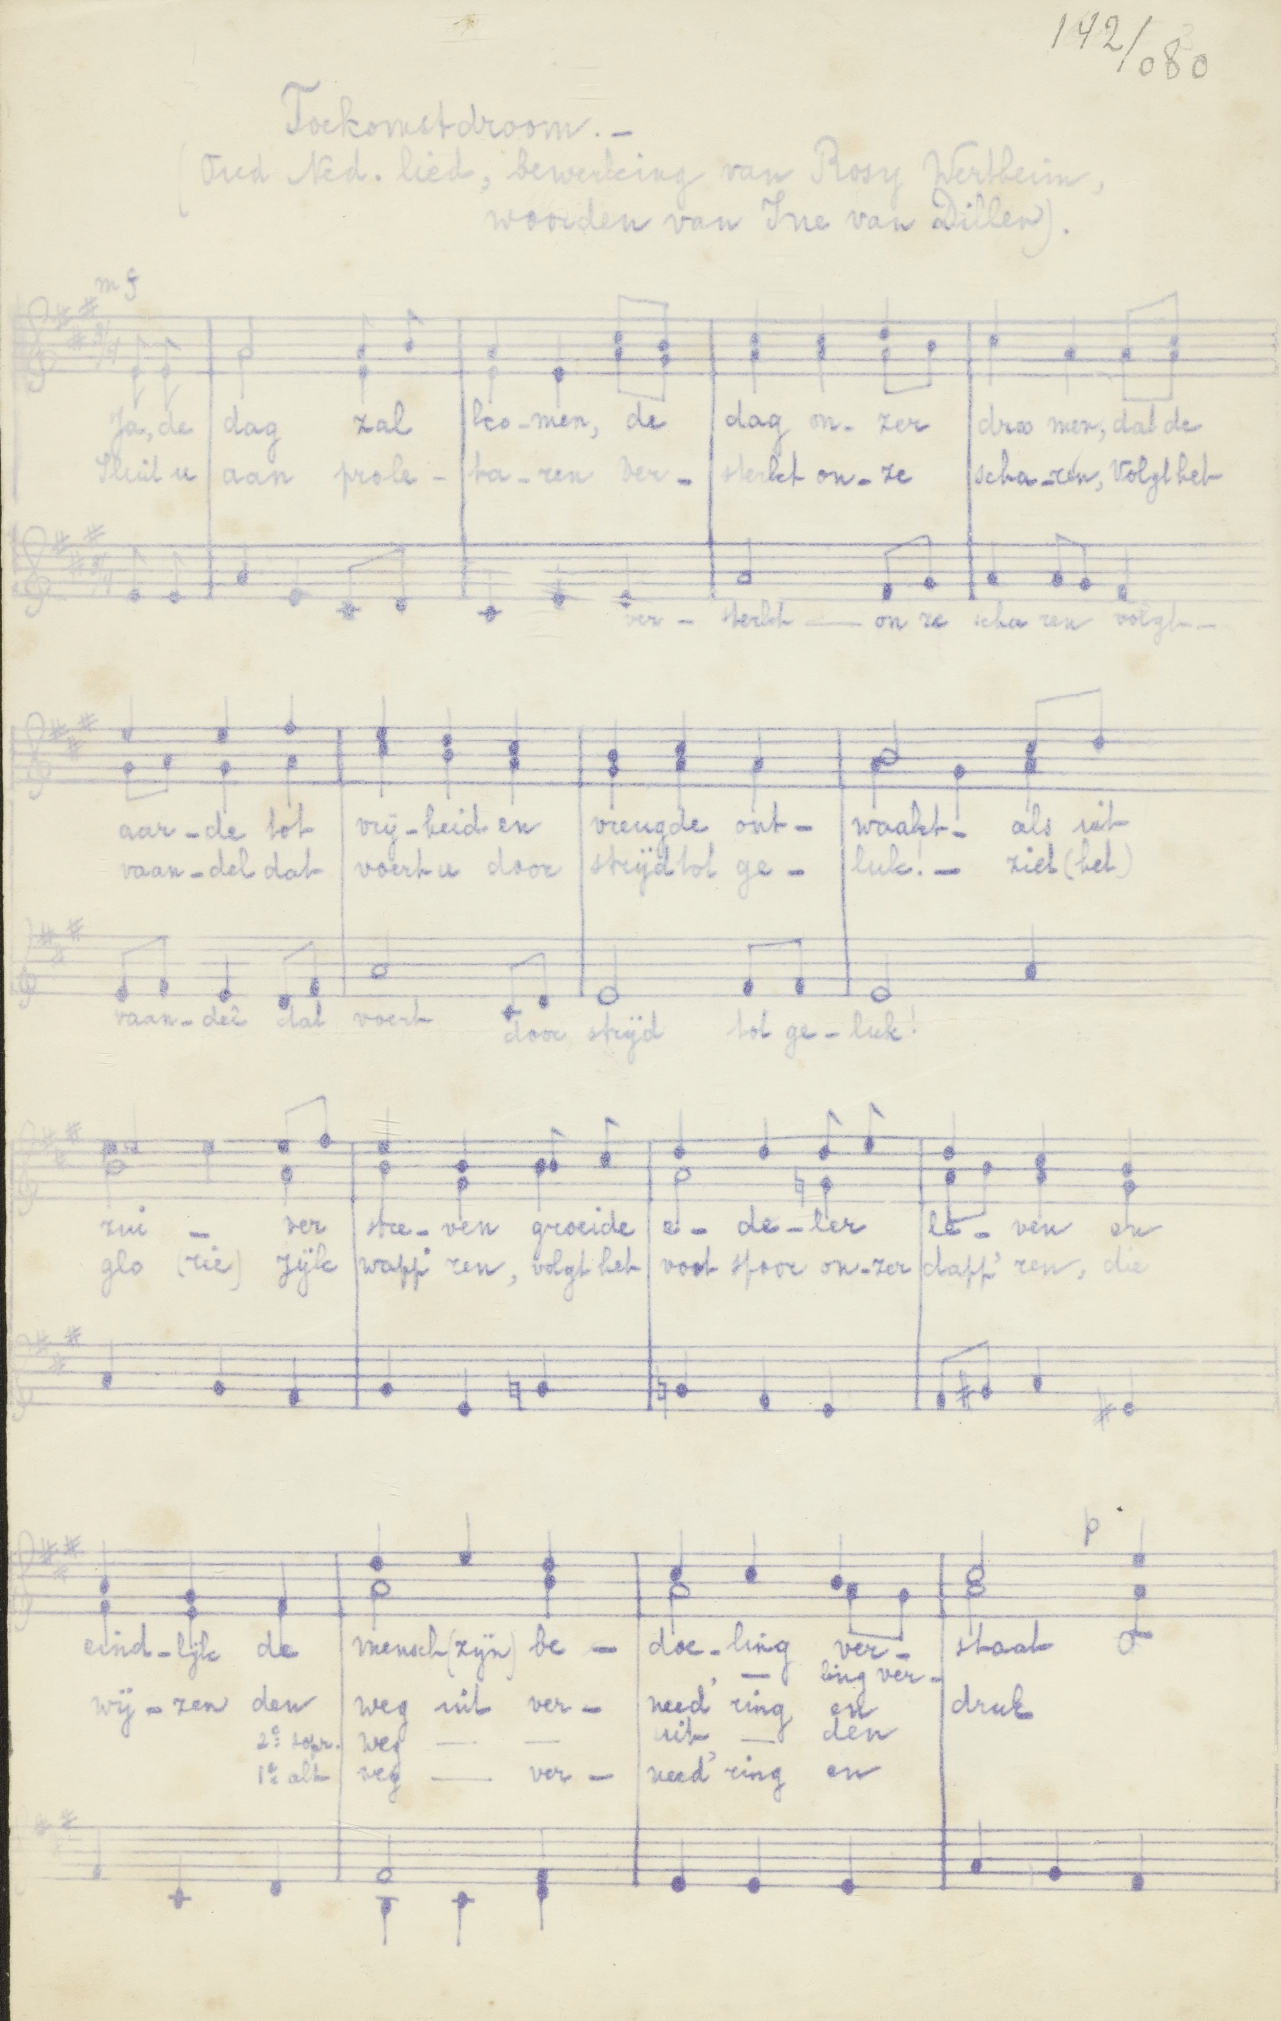 142/080
Toekomstdroom. —
(Oud Ned. lied, bewerking van Rosy Wertheim,
woorden van Ine van Dillen).
mf
3/4
Ja, de dag zal ko-men, de dag on-zer droo men, dat de
Sluit u aan prole-ta-ren ver-sterkt on-ze scha-ren, Volgt het
3/4
ver-sterkt — on ze scha ren volgt —
aar-de tot vrij-heid en vreugde ont-waakt- als uit
vaan-del dat voert u door strijd tot ge-luk! — ziet (het)
vaan-del dat voert door strijd tot ge-luk!
zui — ver stre-ven groeide e-de-ler le-ven en
glo (rie) rijk wapp' ren, volgt het voet spoor on-zer dapp' ren, die
p
eind-lijk de mensch (zijn) be-doe-ling ver-staat O
— ling ver-
wij-zen den weg uit ver-need' ring en druk
2e sopr. weg — — uit — den
1e alt weg — ver-need' ring en